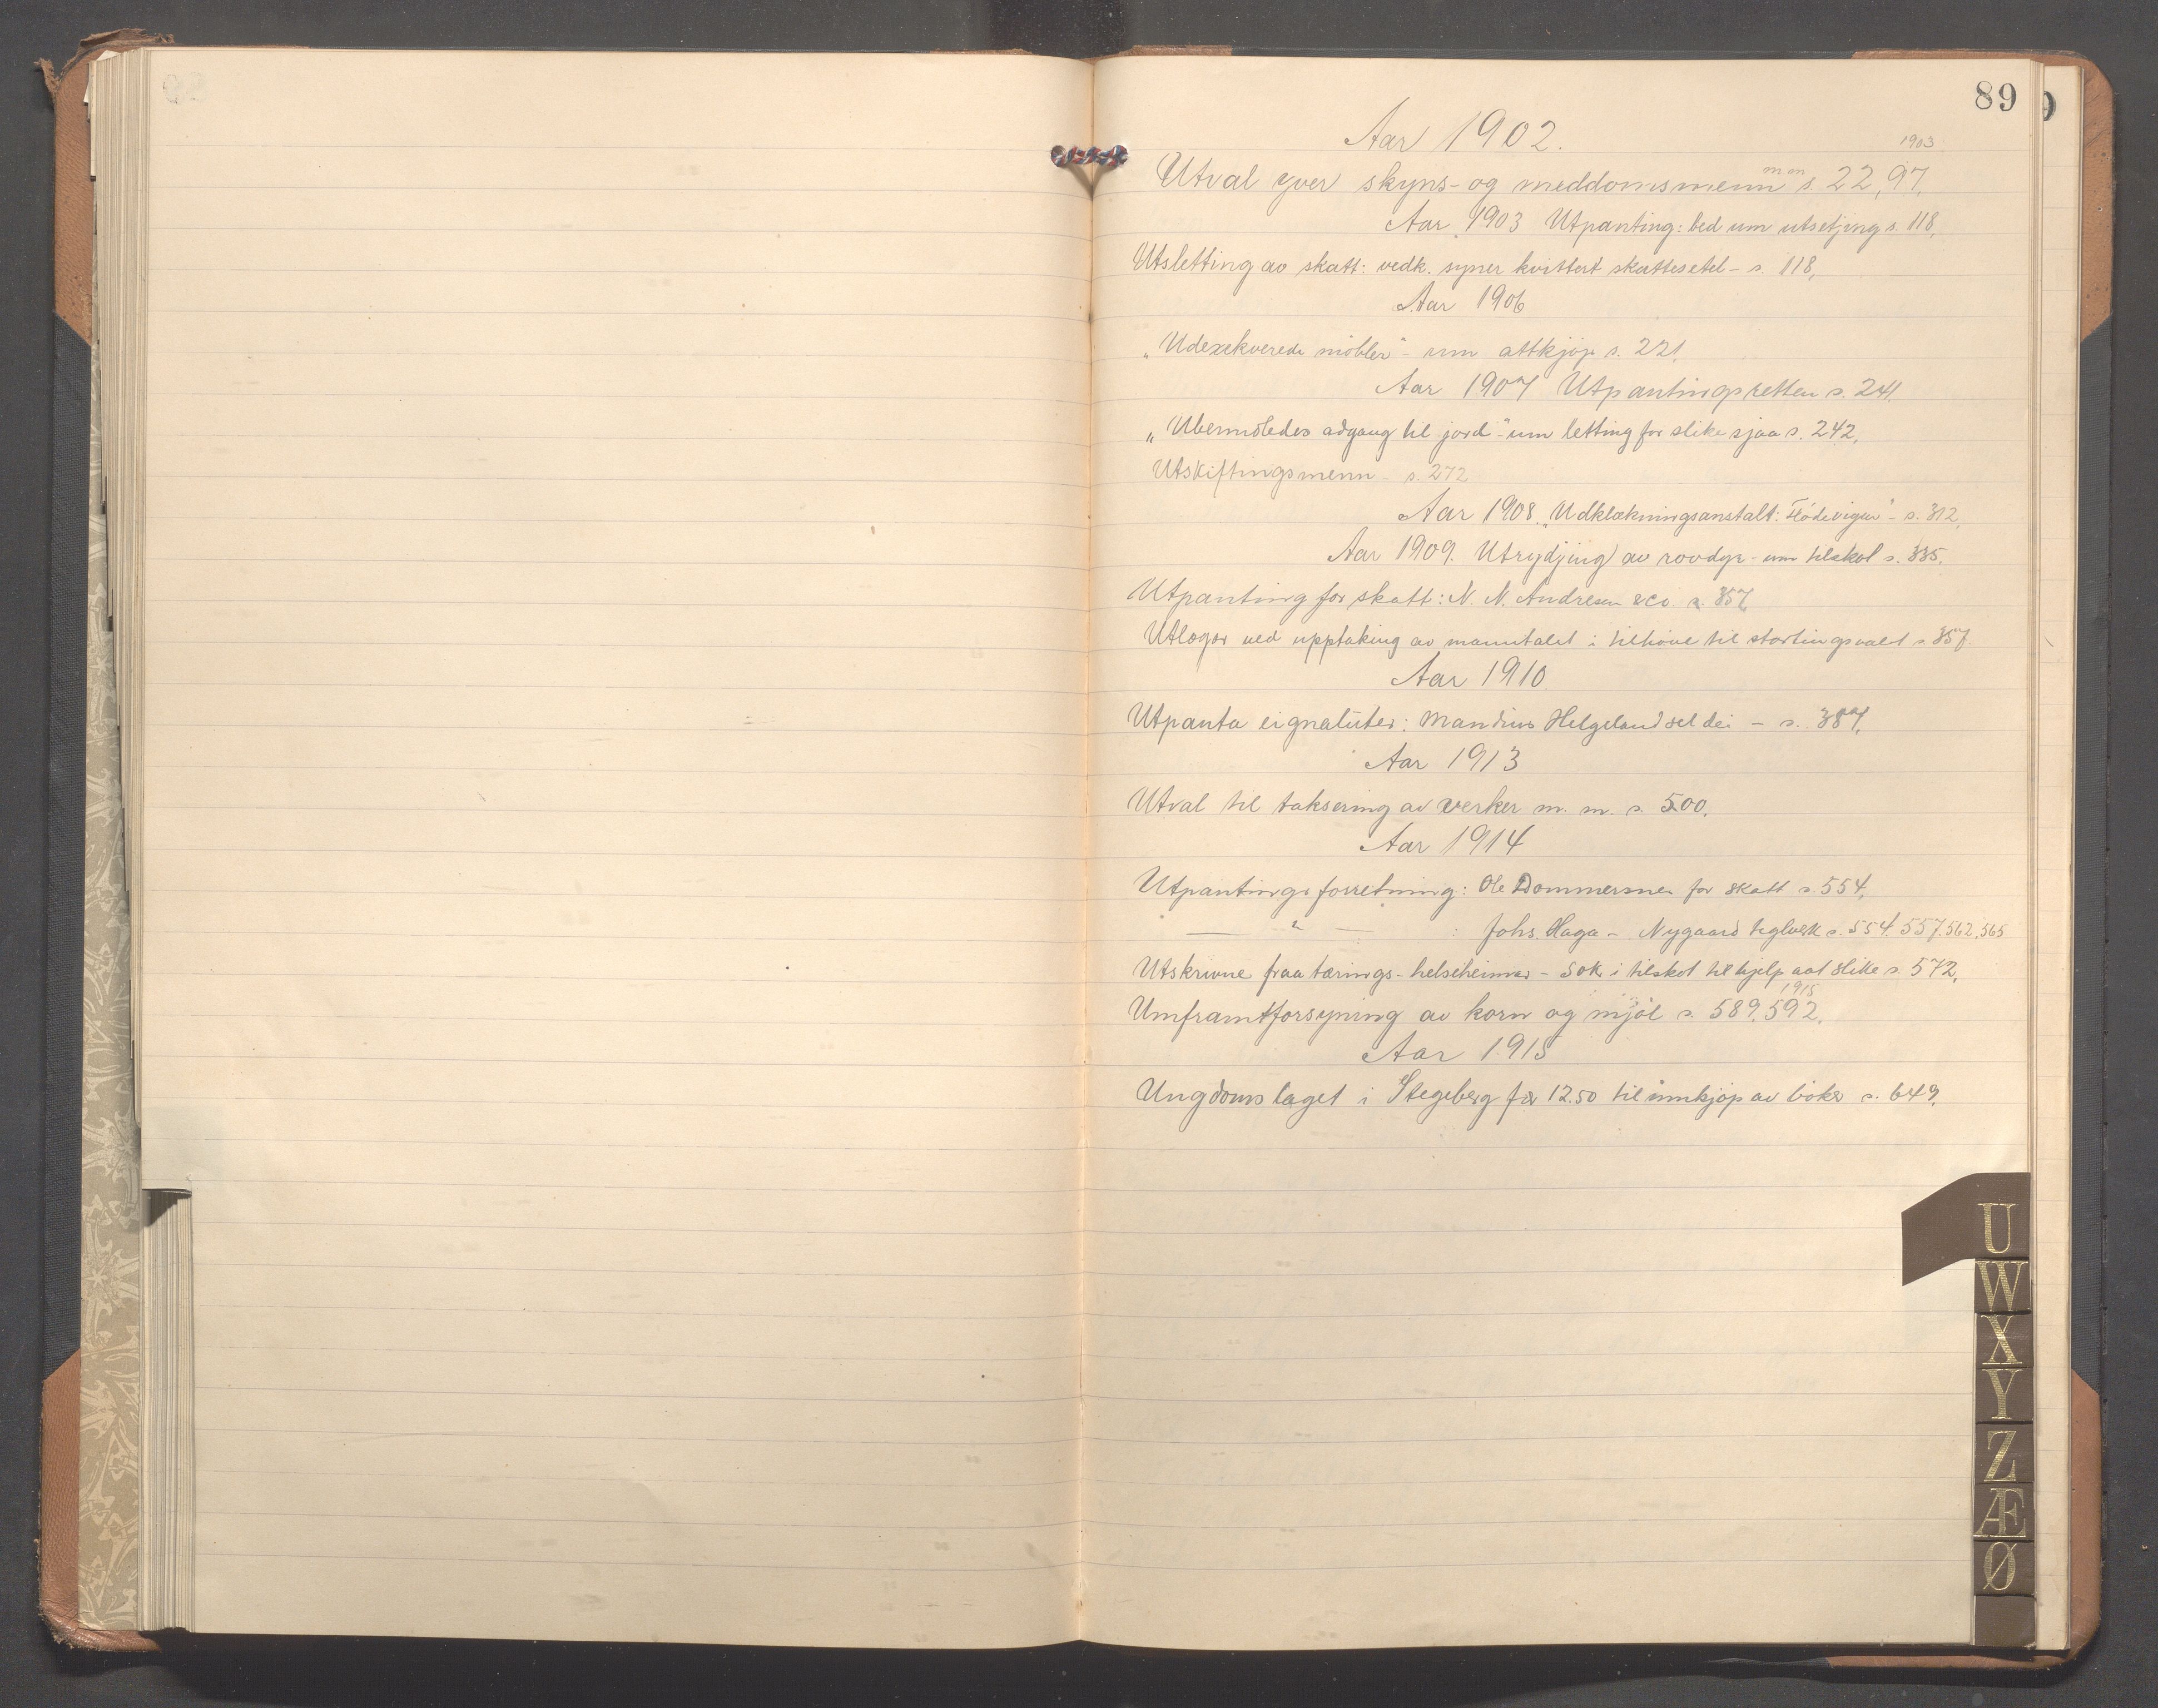 89
Aar 1902.
1903
Utval yver skyns- og meddomsmenn s. 22, 97.
Aar 1903 Utpanting: bed um utsetjing s. 118,
Utsletting av skatt: vedk. syner kvittert skattesetel - s. 118,
Aar 1906
„Udexekverede møbler" - um attkjøp s. 221.
Aar 1907 Utpantingsretten s. 241.
„Ubemidledes adgang til jord" - um letting for slike sjaa s. 242.
Utskiftingsmenn - s. 272
Aar 1908. „Udklækningsanstalt: Flødevigen" - s. 312,
Aar 1909. Utrydjing av rovdyr - um tilskot s. 335.
Utpanting for skatt: N. N. Andresen & co. s. 357,
Utlogor ved upptaking av manntalet i tilhøve til stortingsvalet s. 357.
Aar 1910.
Utpanta eignaluter: Mandius Helgeland sel dei - s. 387,
Aar 1913
Utval til taksering av verker m. m. s. 500.
Aar 1914
Utpantingsforretning: Ole Dommersnes for skatt s. 554,
— " — : Johs. Haga - Nygaard teglverk s. 554. 557. 562, 565
Utskrivne fraa tærings-helseheimar - søk i tilskot til hjelp aat slike s. 572,
1915
Umframtforsyning av korn og mjøl s. 589. 592.
Aar 1915
Ungdomslaget i Stegeberg fær 12.50 til innkjøp av bøker s. 649.
U
W
X
Y
Z
Æ
Ø